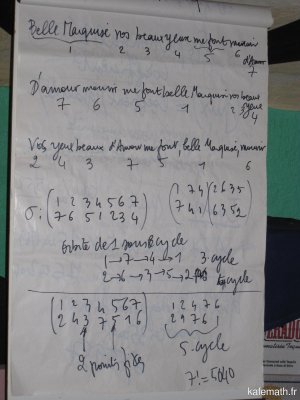 Belle Marquise vos beaux yeux me font mourir
d'Amour
1 2 3 4 5 6
7
D'amour mourir me font belle Marquise vos beaux
yeux
7 6 5 1 2 3
4
Vos yeux beaux d'Amour me font, belle Marquise, mourir
2 4 3 7 5 1 6
σ: (1 2 3 4 5 6 7) (1 7 4)(2 6 3 5)
(7 6 5 1 2 3 4) (7 4 1)(6 3 5 2)
orbite de 1 sous cycle
1→7→4→1 3-cycle
2→6→3→5→2 cycle
(1 2 3 4 5 6 7) 1 2 4 7 6
(2 4 3 7 5 1 6) 2 4 7 6 1
2 points fixes
5-cycle
7! = 5040
kafemath.fr